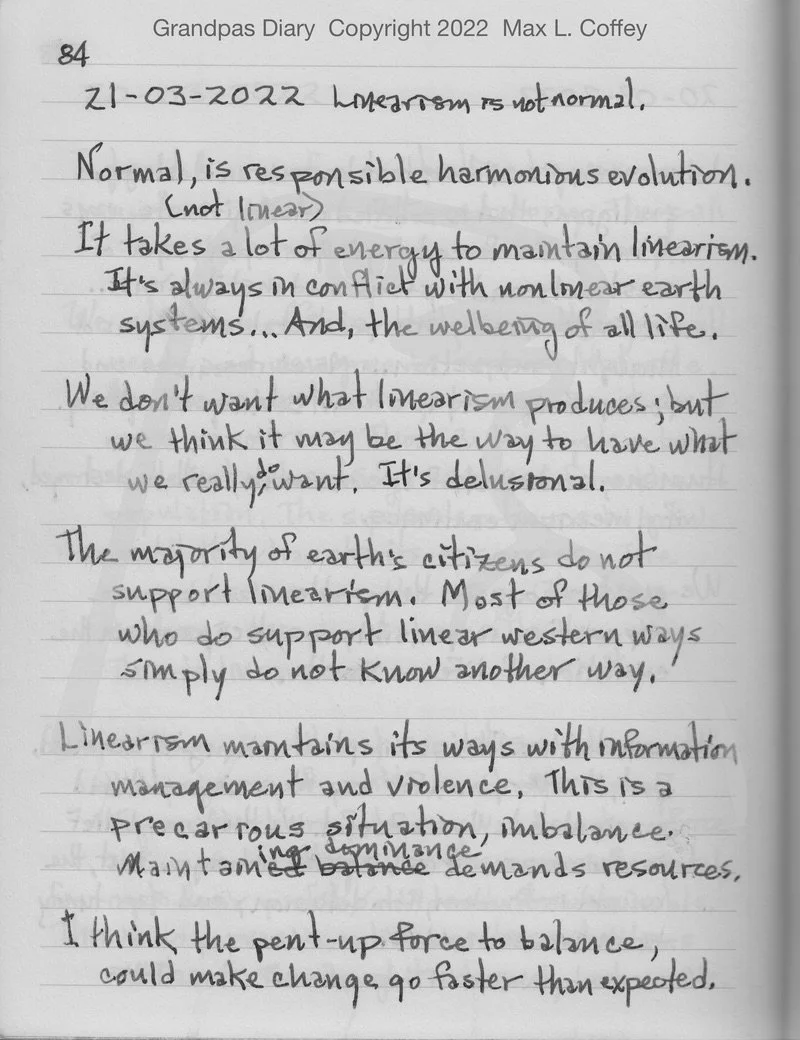 Grandpas Diary Copyright 2022 Max L. Coffey
84
21-03-2022 Linearism is not normal.
Normal, is responsible harmonious evolution.
(not linear)
It takes a lot of energy to maintain linearism.
It's always in conflict with nonlinear earth
systems... And, the welbeing of all life.
We don't want what linearism produces; but
we think it may be the way to have what
we really, do want. It's delusional.
The majority of earth's citizens do not
support linearism. Most of those
who do support linear western ways
simply do not know another way.
Linearism maintains its ways with information
management and violence. This is a
precarious situation, imbalance.
ing dominance
Maintained balance demands resources.
I think the pent-up force to balance,
could make change go faster than expected.